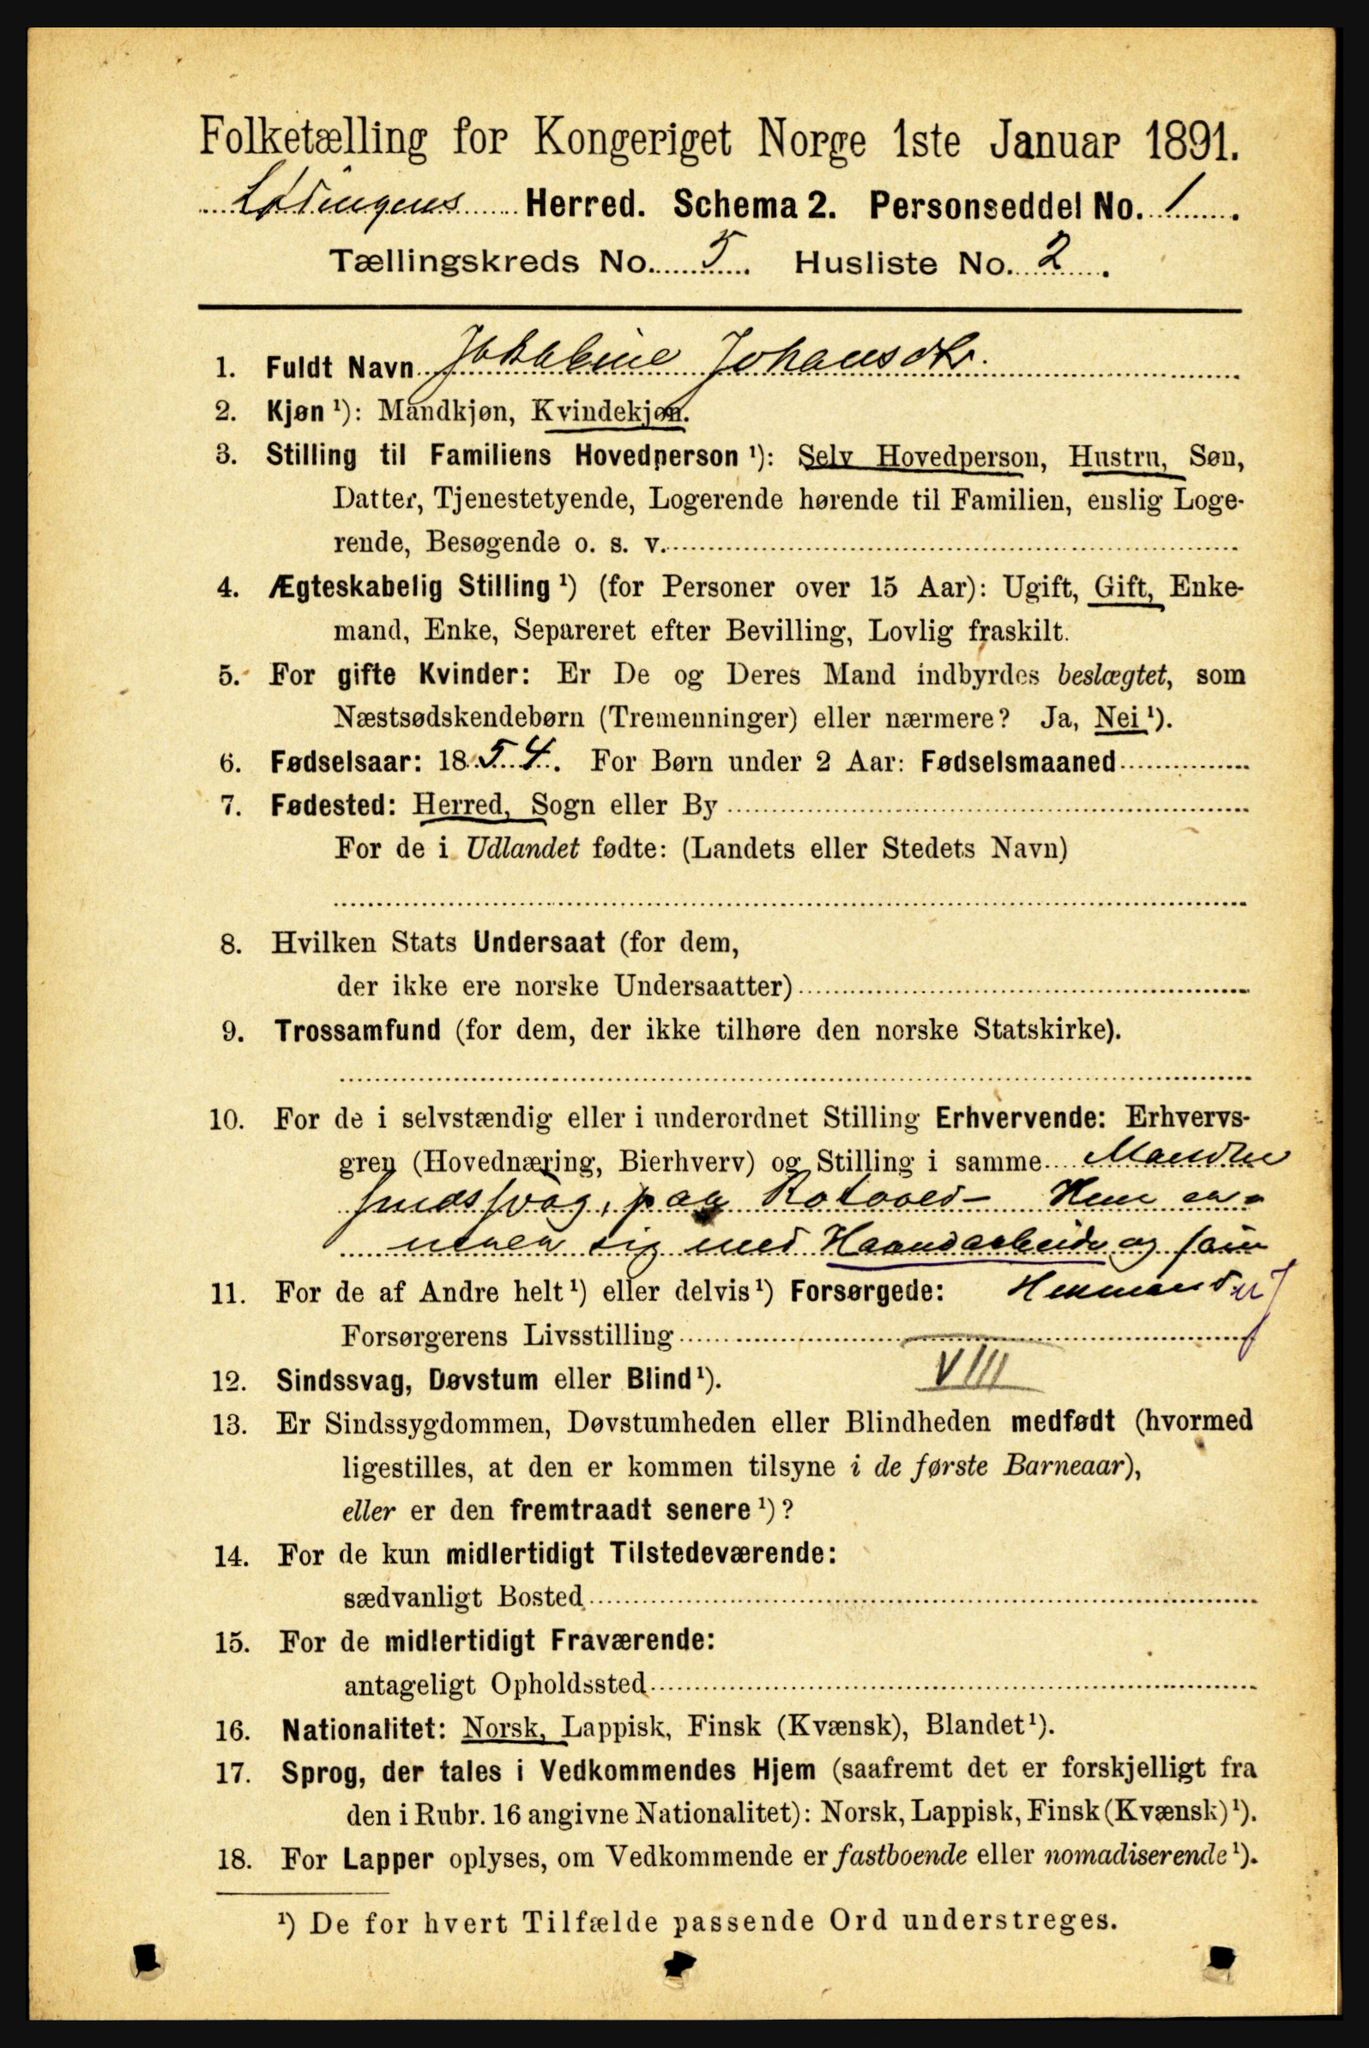 Folketælling for Kongeriget Norge 1ste Januar 1891.
Lødingens Herred. Schema 2. Personseddel No. 1.
Tællingskreds No. 5. Husliste No. 2.
1. Fuldt Navn Jakobine Johansdtr.
2. Kjøn ¹): Mandkjøn, Kvindekjøn.
3. Stilling til Familiens Hovedperson ¹): Selv Hovedperson, Hustru, Søn,
Datter, Tjenestetyende, Logerende hørende til Familien, enslig Loge-
rende, Besøgende o. s. v.
4. Ægteskabelig Stilling ¹) (for Personer over 15 Aar): Ugift, Gift, Enke-
mand, Enke, Separeret efter Bevilling, Lovlig fraskilt.
5. For gifte Kvinder: Er De og Deres Mand indbyrdes beslægtet, som
Næstsødskendebørn (Tremenninger) eller nærmere? Ja, Nei ¹).
6. Fødselsaar: 1854. For Børn under 2 Aar: Fødselsmaaned
7. Fødested: Herred, Sogn eller By
For de i Udlandet fødte: (Landets eller Stedets Navn)
8. Hvilken Stats Undersaat (for dem,
der ikke ere norske Undersaatter)
9. Trossamfund (for dem, der ikke tilhøre den norske Statskirke).
10. For de i selvstændig eller i underordnet Stilling Erhvervende: Erhvervs-
gren (Hovednæring, Bierhverv) og Stilling i samme Manden
sindssvag, paa Rotvold - Hun
sig med Haandarbeide og
11. For de af Andre helt ¹) eller delvis ¹) Forsørgede:
Forsørgerens Livsstilling
VIII
12. Sindssvag, Døvstum eller Blind ¹).
13. Er Sindssygdommen, Døvstumheden eller Blindheden medfødt (hvormed
ligestilles, at den er kommen tilsyne i de første Barneaar),
eller er den fremtraadt senere ¹)?
14. For de kun midlertidigt Tilstedeværende:
sædvanligt Bosted
15. For de midlertidigt Fraværende:
antageligt Opholdssted
16. Nationalitet: Norsk, Lappisk, Finsk (Kvænsk), Blandet ¹).
17. Sprog, der tales i Vedkommendes Hjem (saafremt det er forskjelligt fra
den i Rubr. 16 angivne Nationalitet): Norsk, Lappisk, Finsk (Kvænsk) ¹).
18. For Lapper oplyses, om Vedkommende er fastboende eller nomadiserende ¹).
¹) De for hvert Tilfælde passende Ord understreges.